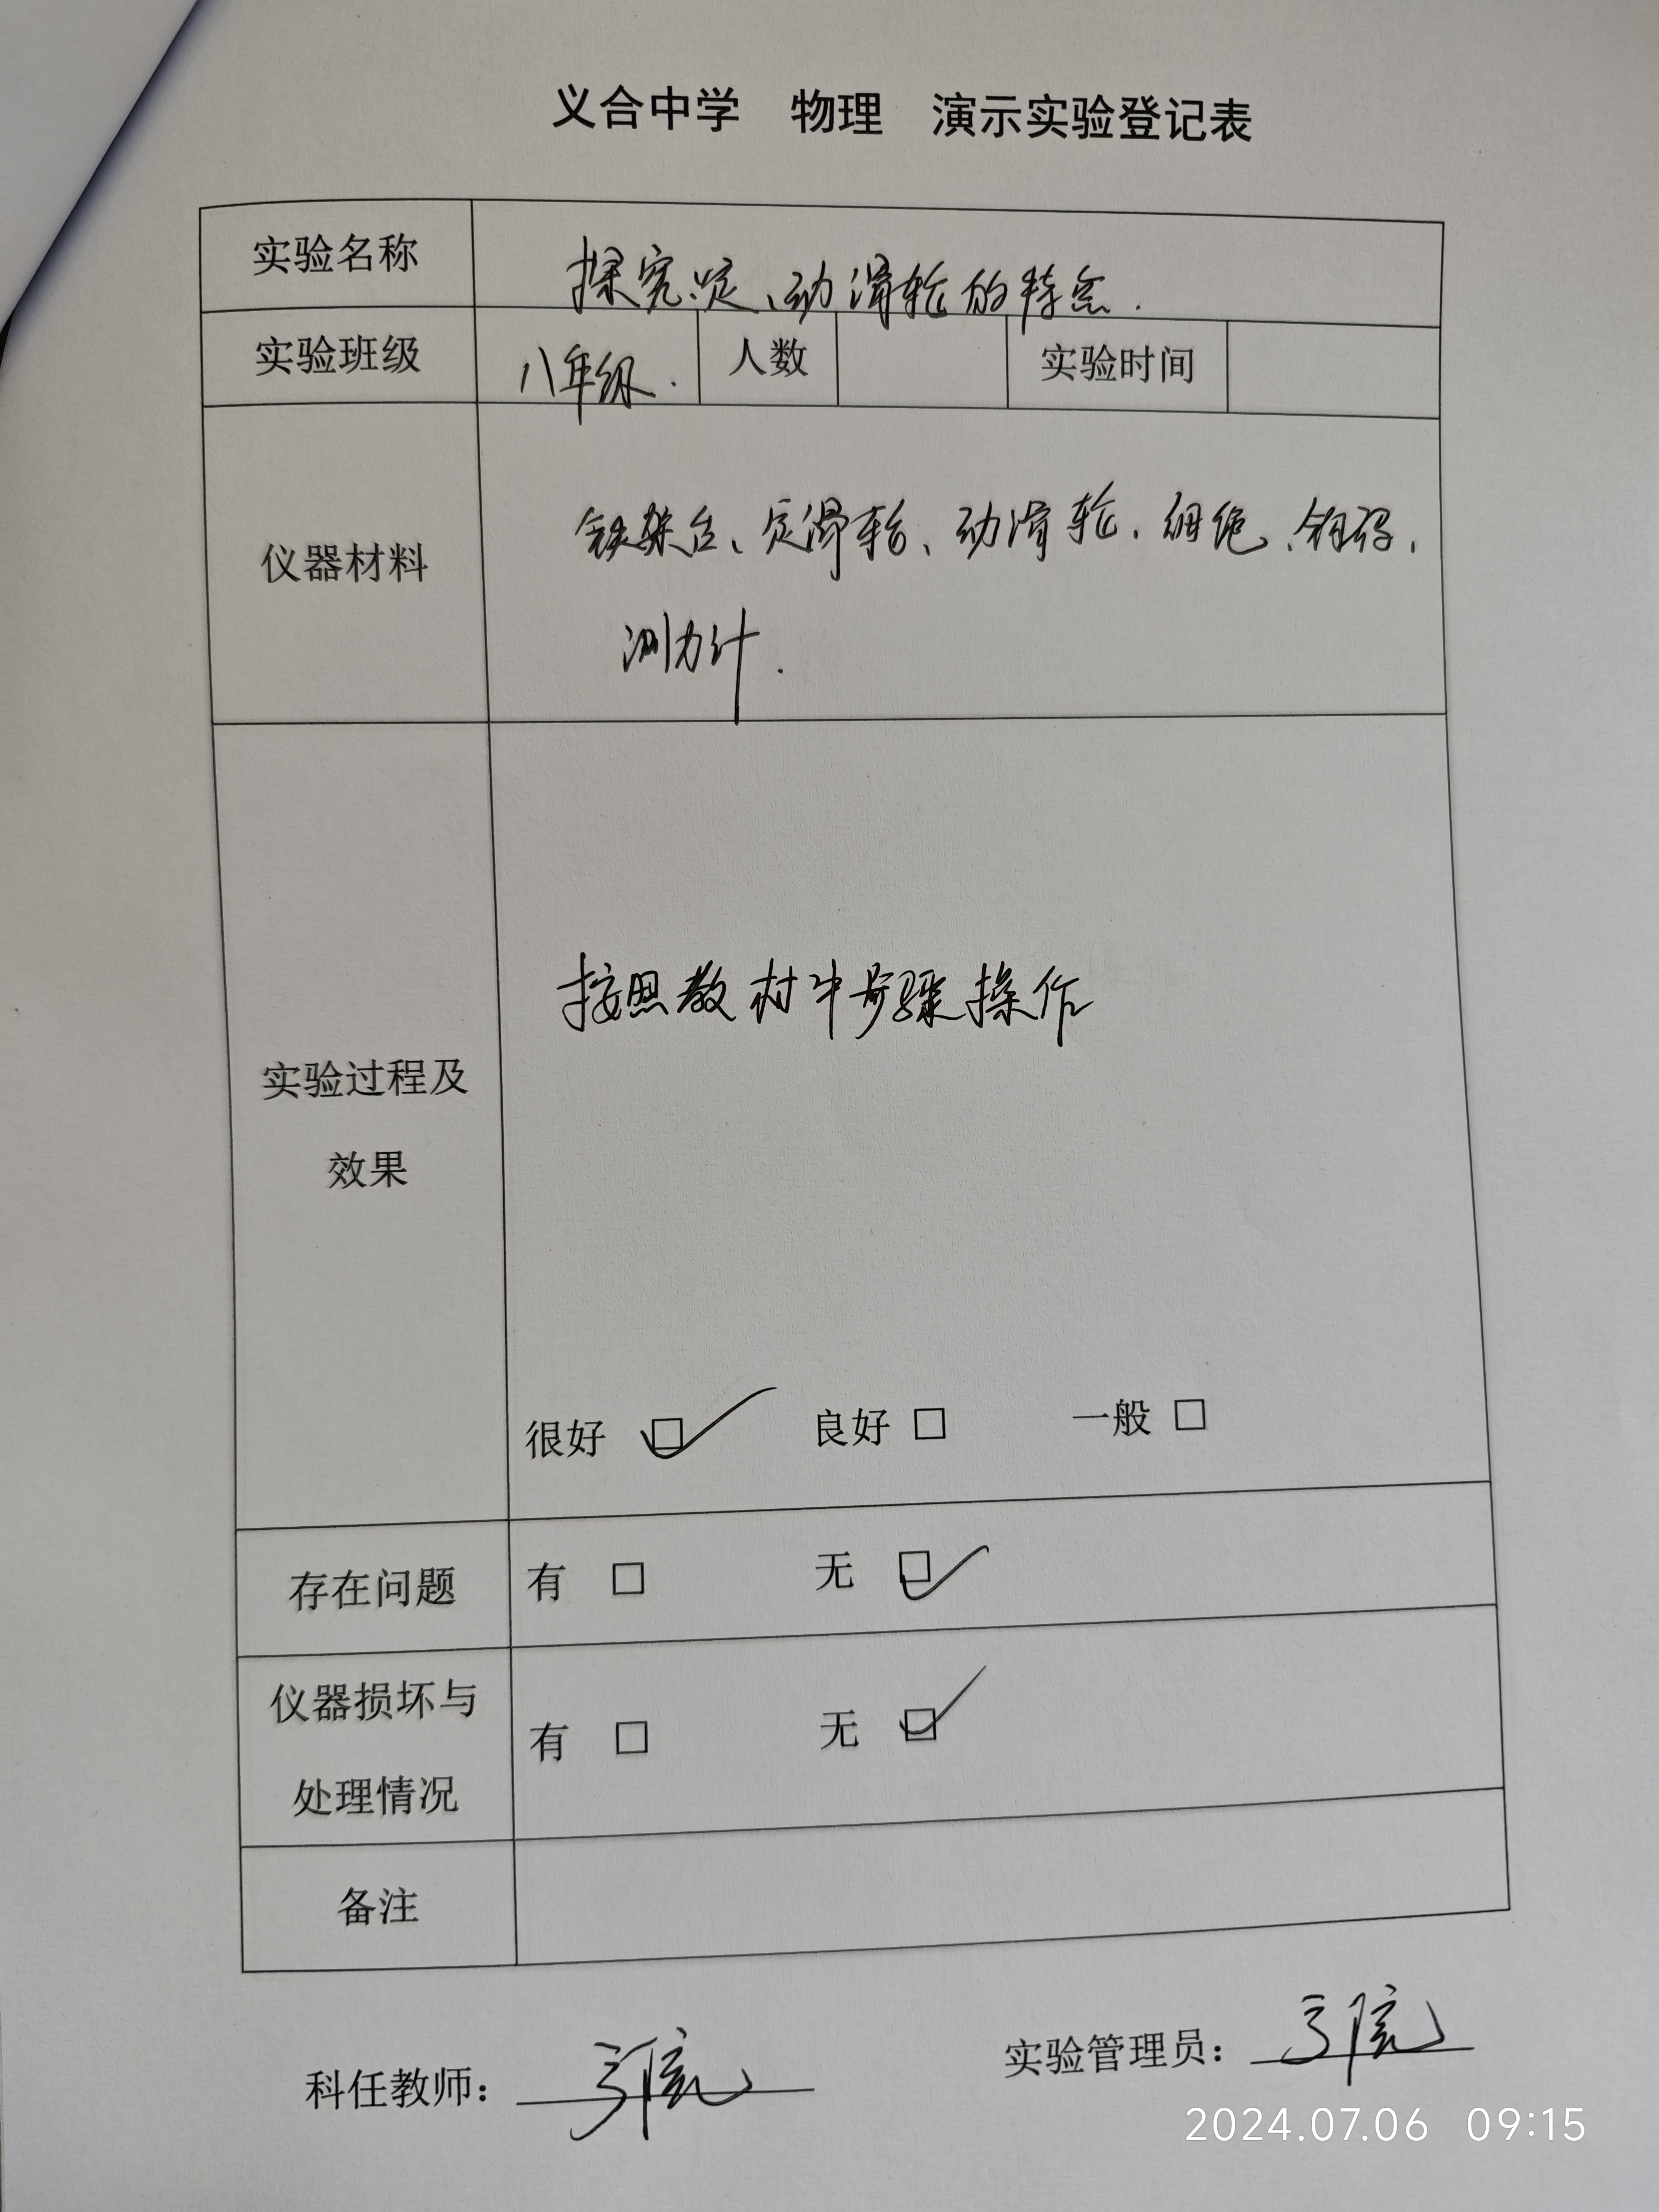 义合中学 物理 演示实验登记表
实验名称 探究定、动滑轮的特点.
实验班级 八年级. 人数 实验时间
仪器材料 铁架台、定滑轮、动滑轮、细绳、钩码、
测力计.
按照教材中步骤操作
实验过程及
效果
很好 ☑ 良好 □ 一般 □
存在问题 有 □ 无 ☑
仪器损坏与
有 □ 无 ☑
处理情况
备注
科任教师: 实验管理员:
2024.07.06 09:15